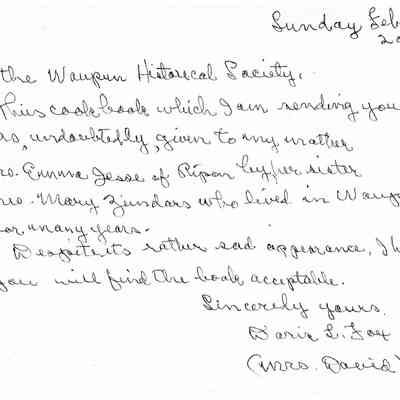 Sunday Feb
20
the Waupun Historical Society,
This cook book which I am sending you
as, undoubtedly, given to my mother
rs. Emma Jesse of Ripon by her sister
rs. Mary Zundars who lived in Waup
or many years.
Despite its rather sad appearance, I h
you will find the book acceptable.
Sincerely yours,
Doris L. Fox
(Mrs. David)